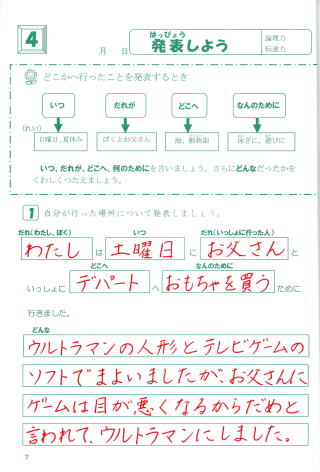 4
月 日
はっぴょう
発表しよう
論理力
伝達力
どこかへ行ったことを発表するとき
いつ だれが どこへ なんのために
(れい)
日曜日、夏休み ぼくとお父さん 海、動物園 泳ぎに、遊びに
いつ、だれが、どこへ、何のためにを言いましょう。さらにどんなだったかを
くわしくつたえましょう。
1 自分が行った場所について発表しましょう。
だれ(わたし、ぼく) いつ だれ(いっしょに行った人)
わたし は 土曜日 に お父さん と
どこへ なんのために
いっしょに デパート へ おもちゃを買う ために
行きました。
どんな
ウルトラマンの人形とテレビゲームの
ソフトでまよいましたが、お父さんに
ゲームは目が悪くなるからだめと
言われて、ウルトラマンにしました。
7